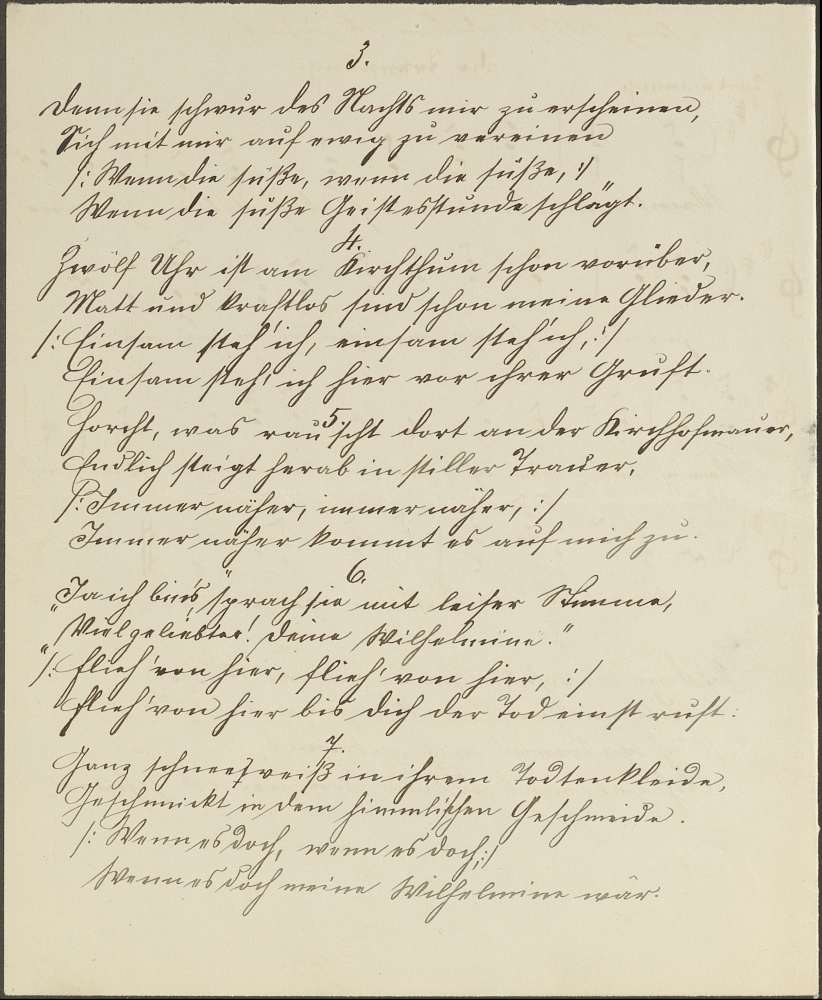 3.
Denn sie schwur des Nachts mir zu erscheinen,
Sich mit mir auf ewig zu vereinen
/: Wenn die süße, wenn die süße, :/
Wenn die süße Geistesstunde schlägt.
4.
Zwölf Uhr ist am Kirchthum schon vorüber,
Matt und kraftlos sind schon meine Glieder.
/: Einsam steh' ich, einsam steh' ich, :/
Einsam steh' ich hier vor ihrer Gruft.
5.
Horcht, was rauscht dort an der Kirchhofmauer,
Endlich steigt herab in stiller Trauer,
/: Immer näher, immer näher, :/
Immer näher kommt es auf mich zu.
6.
"Ja ich bin's," sprach sie mit leiser Stimme,
"Vielgeliebter! Deine Wilhelmine."
"/: Flieh' von hier, flieh' von hier, :/
Flieh' von hier bis dich der Tod einst ruft:
7.
Ganz schneeweiß in ihrem Todtenkleide,
Geschmückt in dem himmlischen Geschmeide.
/: Wenn es doch, wenn es doch, :/
Wenn es doch meine Wilhelmine wär.